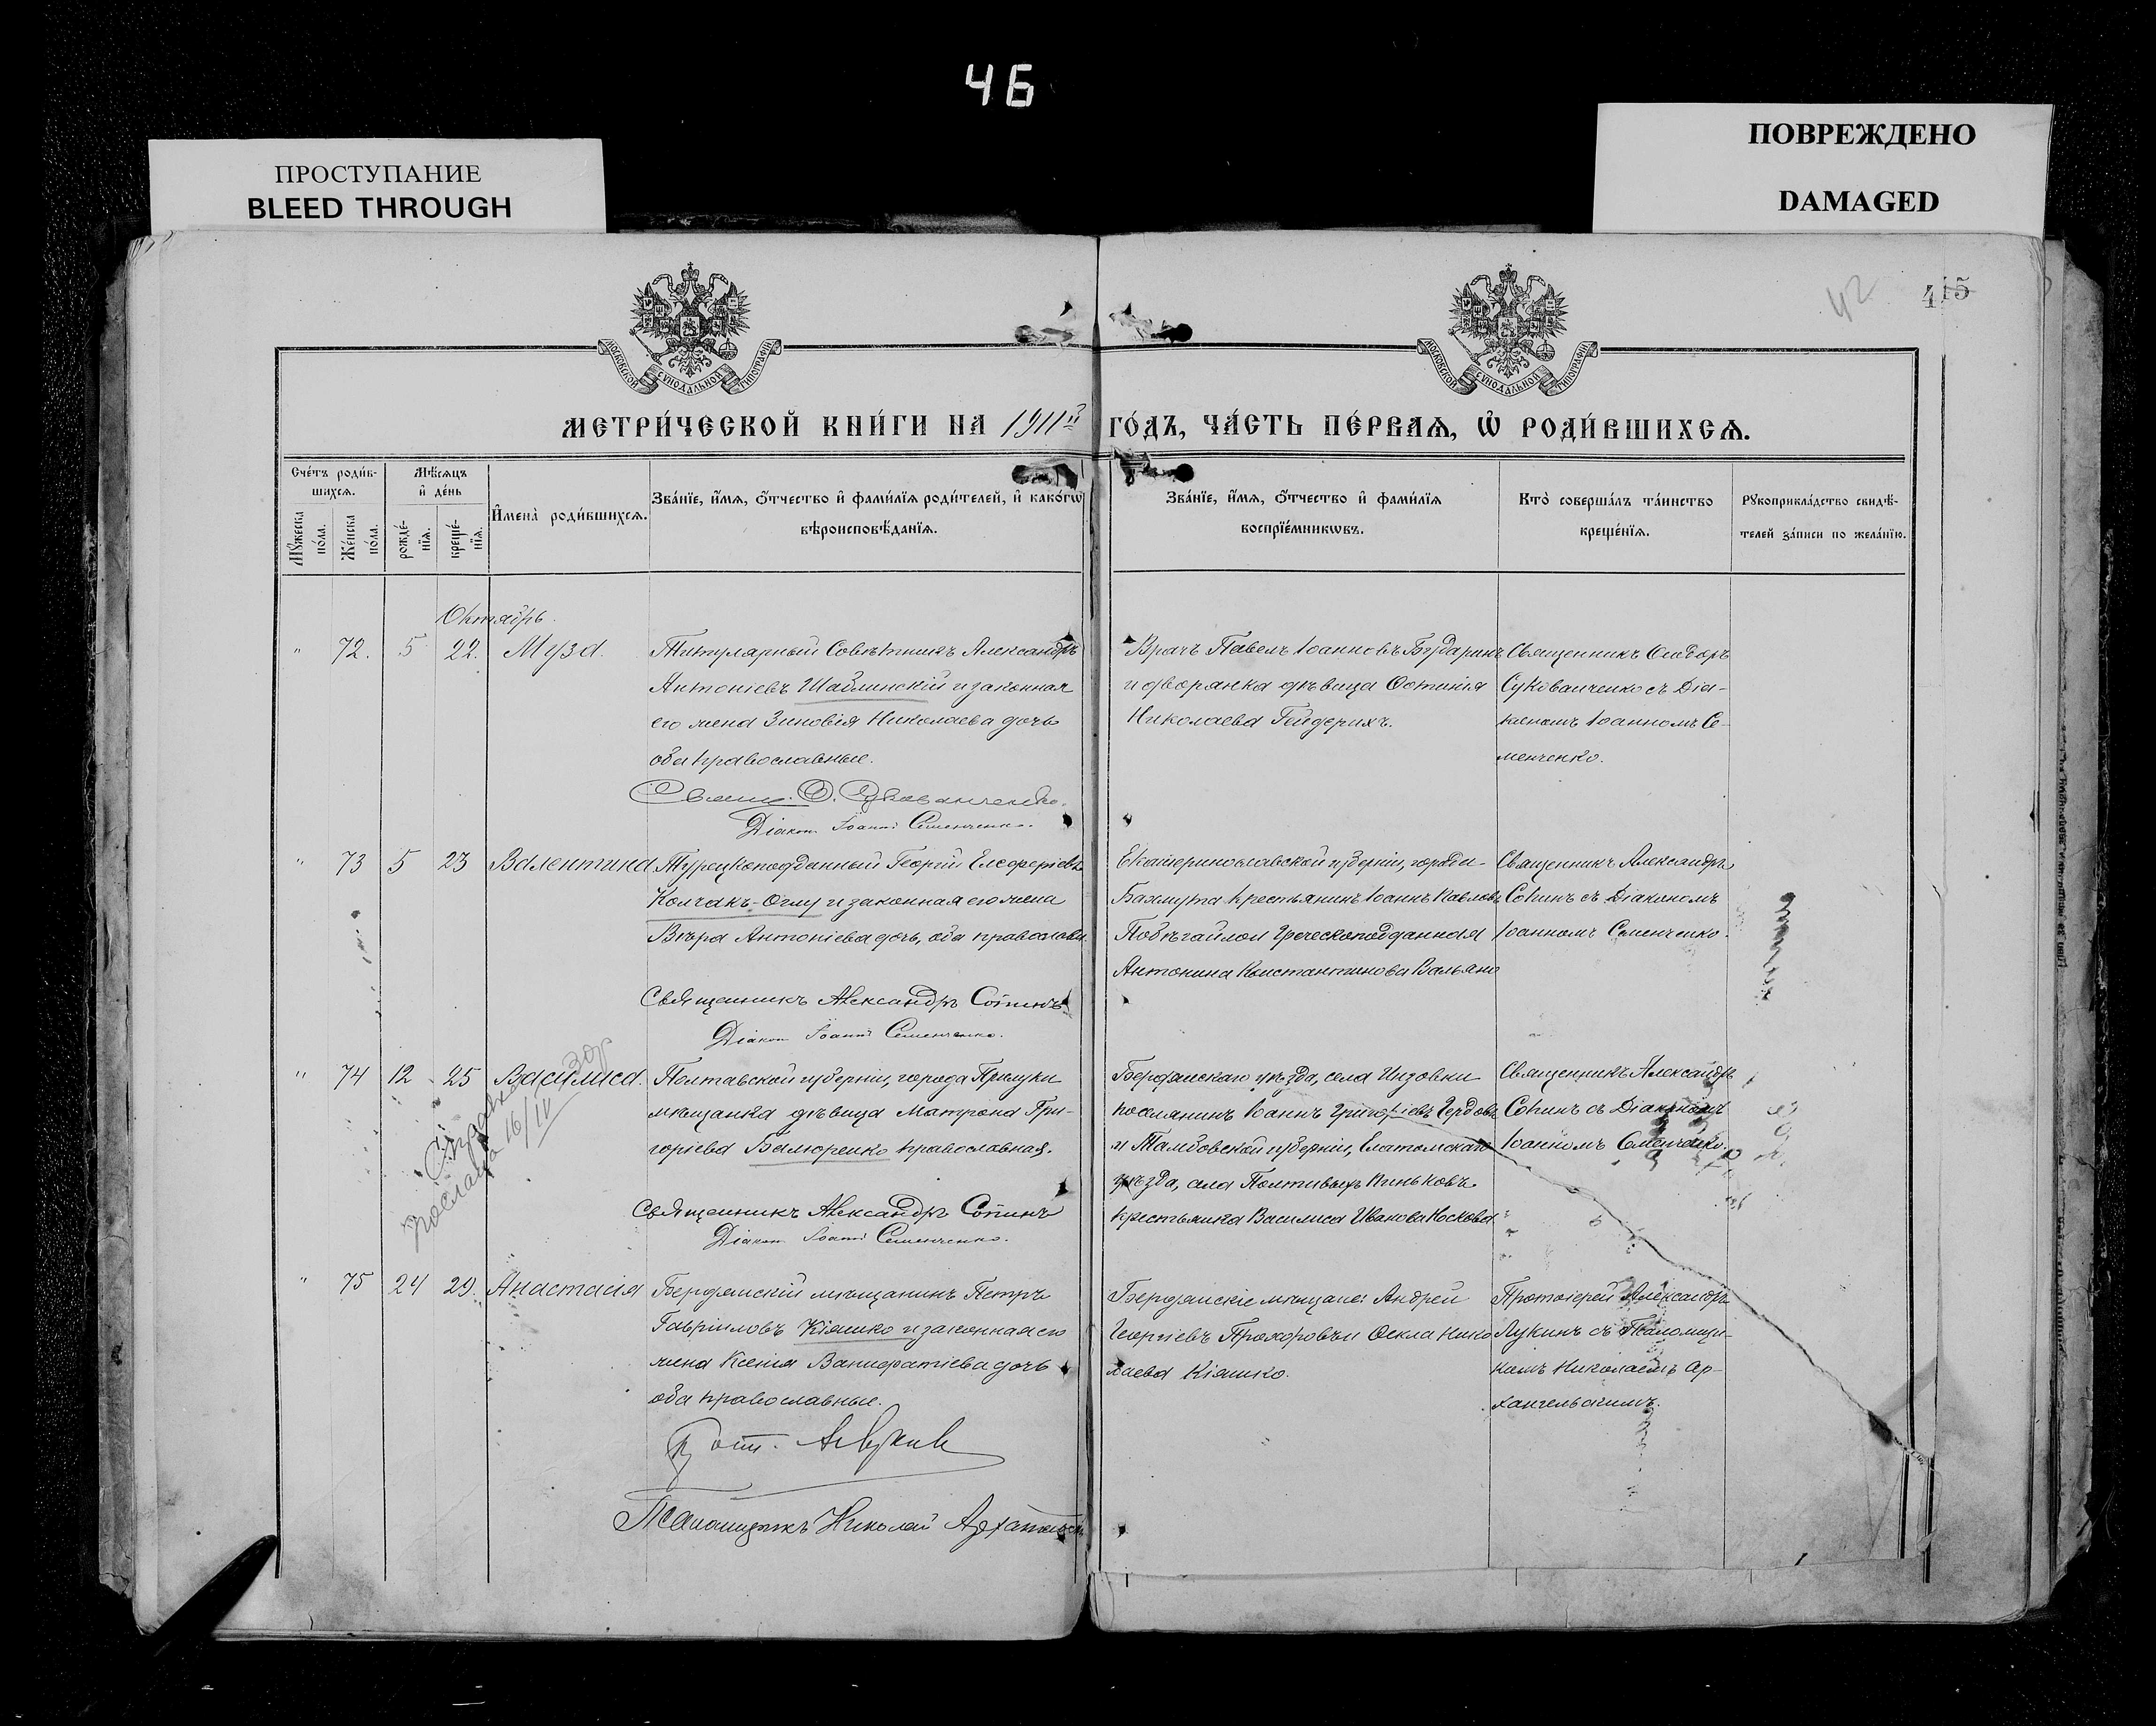 46
ПРОСТУПАНИЕ
BLEED THROUGH
ПОВРЕЖДЕНО
DAMAGED
42
415
МОСКОВСКОЙ СѴНОДАЛЬНОЙ ТИПОГРАФІИ
МОСКОВСКОЙ СѴНОДАЛЬНОЙ ТИПОГРАФІИ
МЕТРИ́ЧЕСКОЙ КНИ́ГИ НА 1911й ГО́ДЪ, ЧА́СТЬ ПЕ́РВАѦ, Ѽ РОДИ́ВШИХСѦ.
Сче́тъ роди́в-
шихсѧ.
Мꙋ́жеска по́ла.
Же́нска по́ла.
Мѣ́сѧцъ
и҆ де́нь
рожде́-
нїѧ.
креще́-
нїѧ.
И҆мена̀ роди́вшихсѧ.
Зва́нїе, и҆́мѧ, ѻ҆́тчество и҆ фами́лїѧ роди́телей, и҆ како́гѡ
вѣроисповѣ́данїѧ.
Зва́нїе, и҆́мѧ, ѻ҆́тчество и҆ фами́лїѧ
воспрїе́мникѡвъ.
Кто̀ соверша́лъ та́инство
креще́нїѧ.
Рꙋкоприкла́дство свидѣ́-
телей за́писи по жела́нїю.
Октябрь.
" 72. 5 22. Муза.
Титулярный Совѣтникъ Александръ
Антоніевъ Шаблинскій и законная
его жена Зиновія Николаева дочь
оба православные.
Свящ. Ѳ. Сукованченко.
Діакон Іоаннъ Семенченко.
Врачъ Павелъ Іоанновъ Бударинъ
и дворянка дѣвица
Николаева Гейдерихъ.
Священникъ Ѳеодоръ
Сукованченко съ Діа-
кономъ Іоанномъ Се-
менченко.
" 73 5 23 Валентина
Турецкоподданный Георгій Елеферіевъ
Колчакъ-Оглу и законная его жена
Вѣра Антоніева дочь, оба православн.
Священникъ Александръ Сопинъ
Діакон Іоаннъ Семенченко.
Екатеринославской губерніи, города
Бахмута крестьянинъ Іоаннъ Павловъ
Побѣгайло и Греческоподданная
Антонина Константинова Вальяно
Священникъ Александръ
Сопинъ съ Діакономъ
Іоанномъ Семенченко.
" 74 12 25 Василиса.
Справка
послана 16/IV
Полтавской губерніи, города Прилуки
мѣщанка дѣвица Матрона Гри-
горіева православная.
Священникъ Александръ Сопинъ
Діакон Іоаннъ Семенченко.
Бердянскаго уѣзда, села Инзовки
поселянинъ Іоаннъ Григоріевъ
и Тамбовской губерніи, Елатомскаго
уѣзда, села
крестьянка Василиса Иванова Носкова.
Священникъ Александръ
Сопинъ съ Діакономъ
Іоанномъ Семенченко.
" 75 24 29. Анастасія
Бердянскій мѣщанинъ Петръ
Гавріиловъ Кіяшко и законная его
жена Ксенія Ванифатіева дочь
оба православные.
Прот. А. Лукинъ
Псаломщикъ Николай Архангельскій
Бердянскіе мѣщане: Андрей
Георгіевъ Прохоровъ и Ѳекла Нико-
лаева Кіяшко.
Протоіерей Александръ
Лукинъ съ Псаломщи-
комъ Николаемъ Ар-
хангельскимъ.